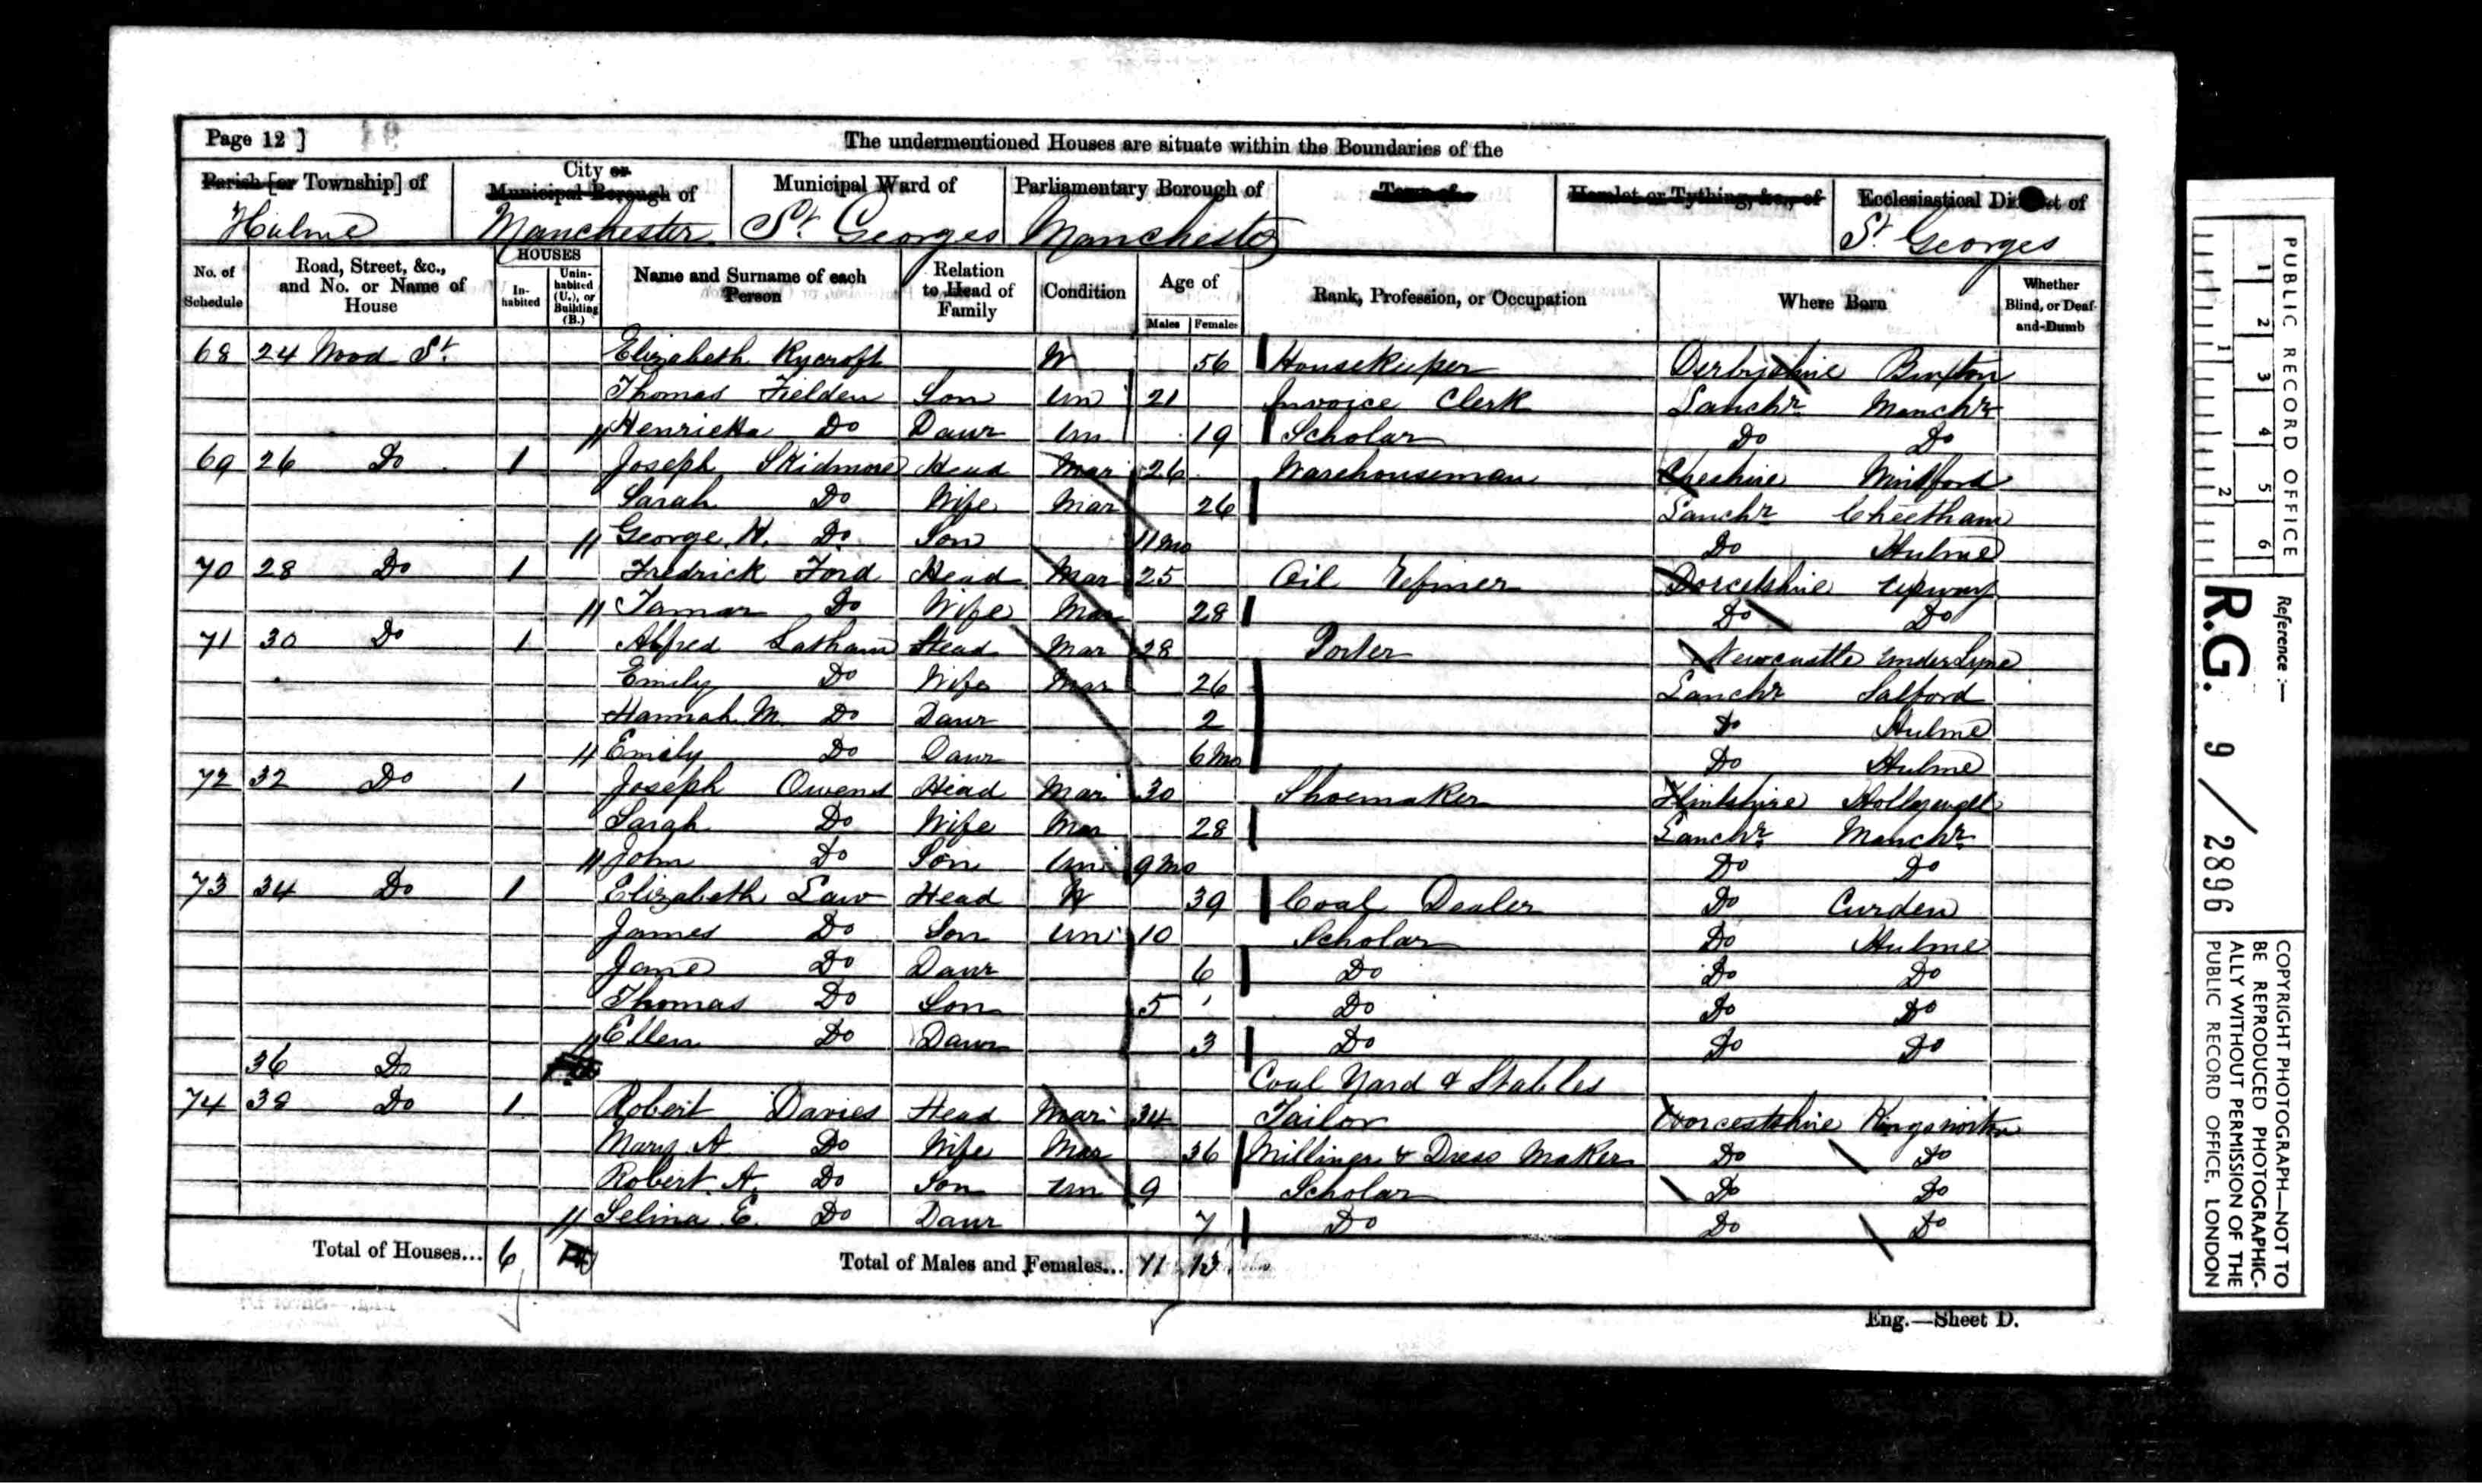 Page 12 ]
The undermentioned Houses are situate within the Boundaries of the
Parish [or Township] of
City or Municipal Borough of
Municipal Ward of
Parliamentary Borough of
Town of
Hamlet or Tything, &c., of
Ecclesiastical District of
Hulme Manchester St. Georges Manchester St. Georges
No. of Schedule
Road, Street, &c., and No. or Name of House
HOUSES
In-habited
Unin-habited (U.), or Building (B.)
Name and Surname of each Person
Relation to Head of Family
Condition
Age of
Males Females
Rank, Profession, or Occupation
Where Born
Whether Blind, or Deaf-and-Dumb
68 24 Wood St. Elizabeth Rycroft W 56 Housekeeper Derbyshire Buxton
Thomas Fielden Son Un 21 Invoice Clerk Lanchr Manchr
// Henrietta Do Daur Un 19 Scholar Do Do
69 26 Do 1 Joseph Skidmore Head Mar 26 Warehouseman Cheshire
Sarah Do Wife Mar 26 Lanchr Cheetham
// George H. Do Son 11 Mo Do Hulme
70 28 Do 1 Fredrick Ford Head Mar 25 Oil Refiner Dorcetshire Upway
// Tamar Do Wife Mar 28 Do Do
71 30 Do 1 Alfred Latham Head Mar 28 Porter Newcastle Under Lyne
Emily Do Wife Mar 26 Lanchr Salford
Hannah M. Do Daur 2 Do Hulme
// Emily Do Daur 6 Mo Do Hulme
72 32 Do 1 Joseph Owens Head Mar 30 Shoemaker Flintshire Hollywell
Sarah Do Wife Mar 28 Lanchr Manchr
// John Do Son Un 9 Mo Do Do
73 34 Do 1 Elizabeth Law Head W 39 Coal Dealer Do Curden
James Do Son Un 10 Scholar Do Hulme
Jane Do Daur 6 Do Do Do
Thomas Do Son 5 Do Do Do
// Ellen Do Daur 3 Do Do Do
36 Do Coal Yard & Stables
74 38 Do 1 Robert Davies Head Mar 34 Tailor Worcestshire Kingsnorton
Mary A Do Wife Mar 36 Milliner & Dress Maker Do Do
Robert A. Do Son Un 9 Scholar Do Do
// Selina E. Do Daur 7 Do Do Do
Total of Houses... 6 Total of Males and Females... 11 13
Eng.—Sheet D.
PUBLIC RECORD OFFICE
1 2 3 4 5 6
1 2
Reference :—
R.G. 9 / 2896
COPYRIGHT PHOTOGRAPH—NOT TO
BE REPRODUCED PHOTOGRAPHIC-
ALLY WITHOUT PERMISSION OF THE
PUBLIC RECORD OFFICE, LONDON